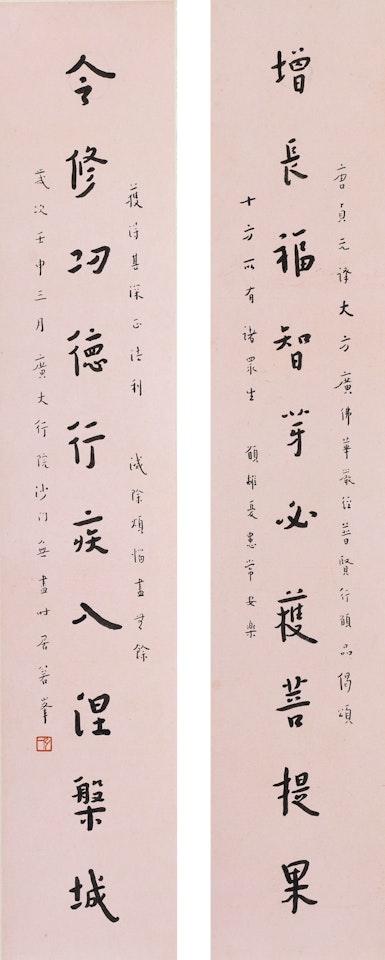 唐貞元譯大方廣佛華嚴經普賢行願品偈頌
增長福智芽必獲菩提果
十方所有諸眾生 願離憂患常安樂
獲得甚深正法利 滅除煩惱盡無餘
令修功德行疾入涅槃城
歲次壬申三月廣大行院沙門無盡時居峯